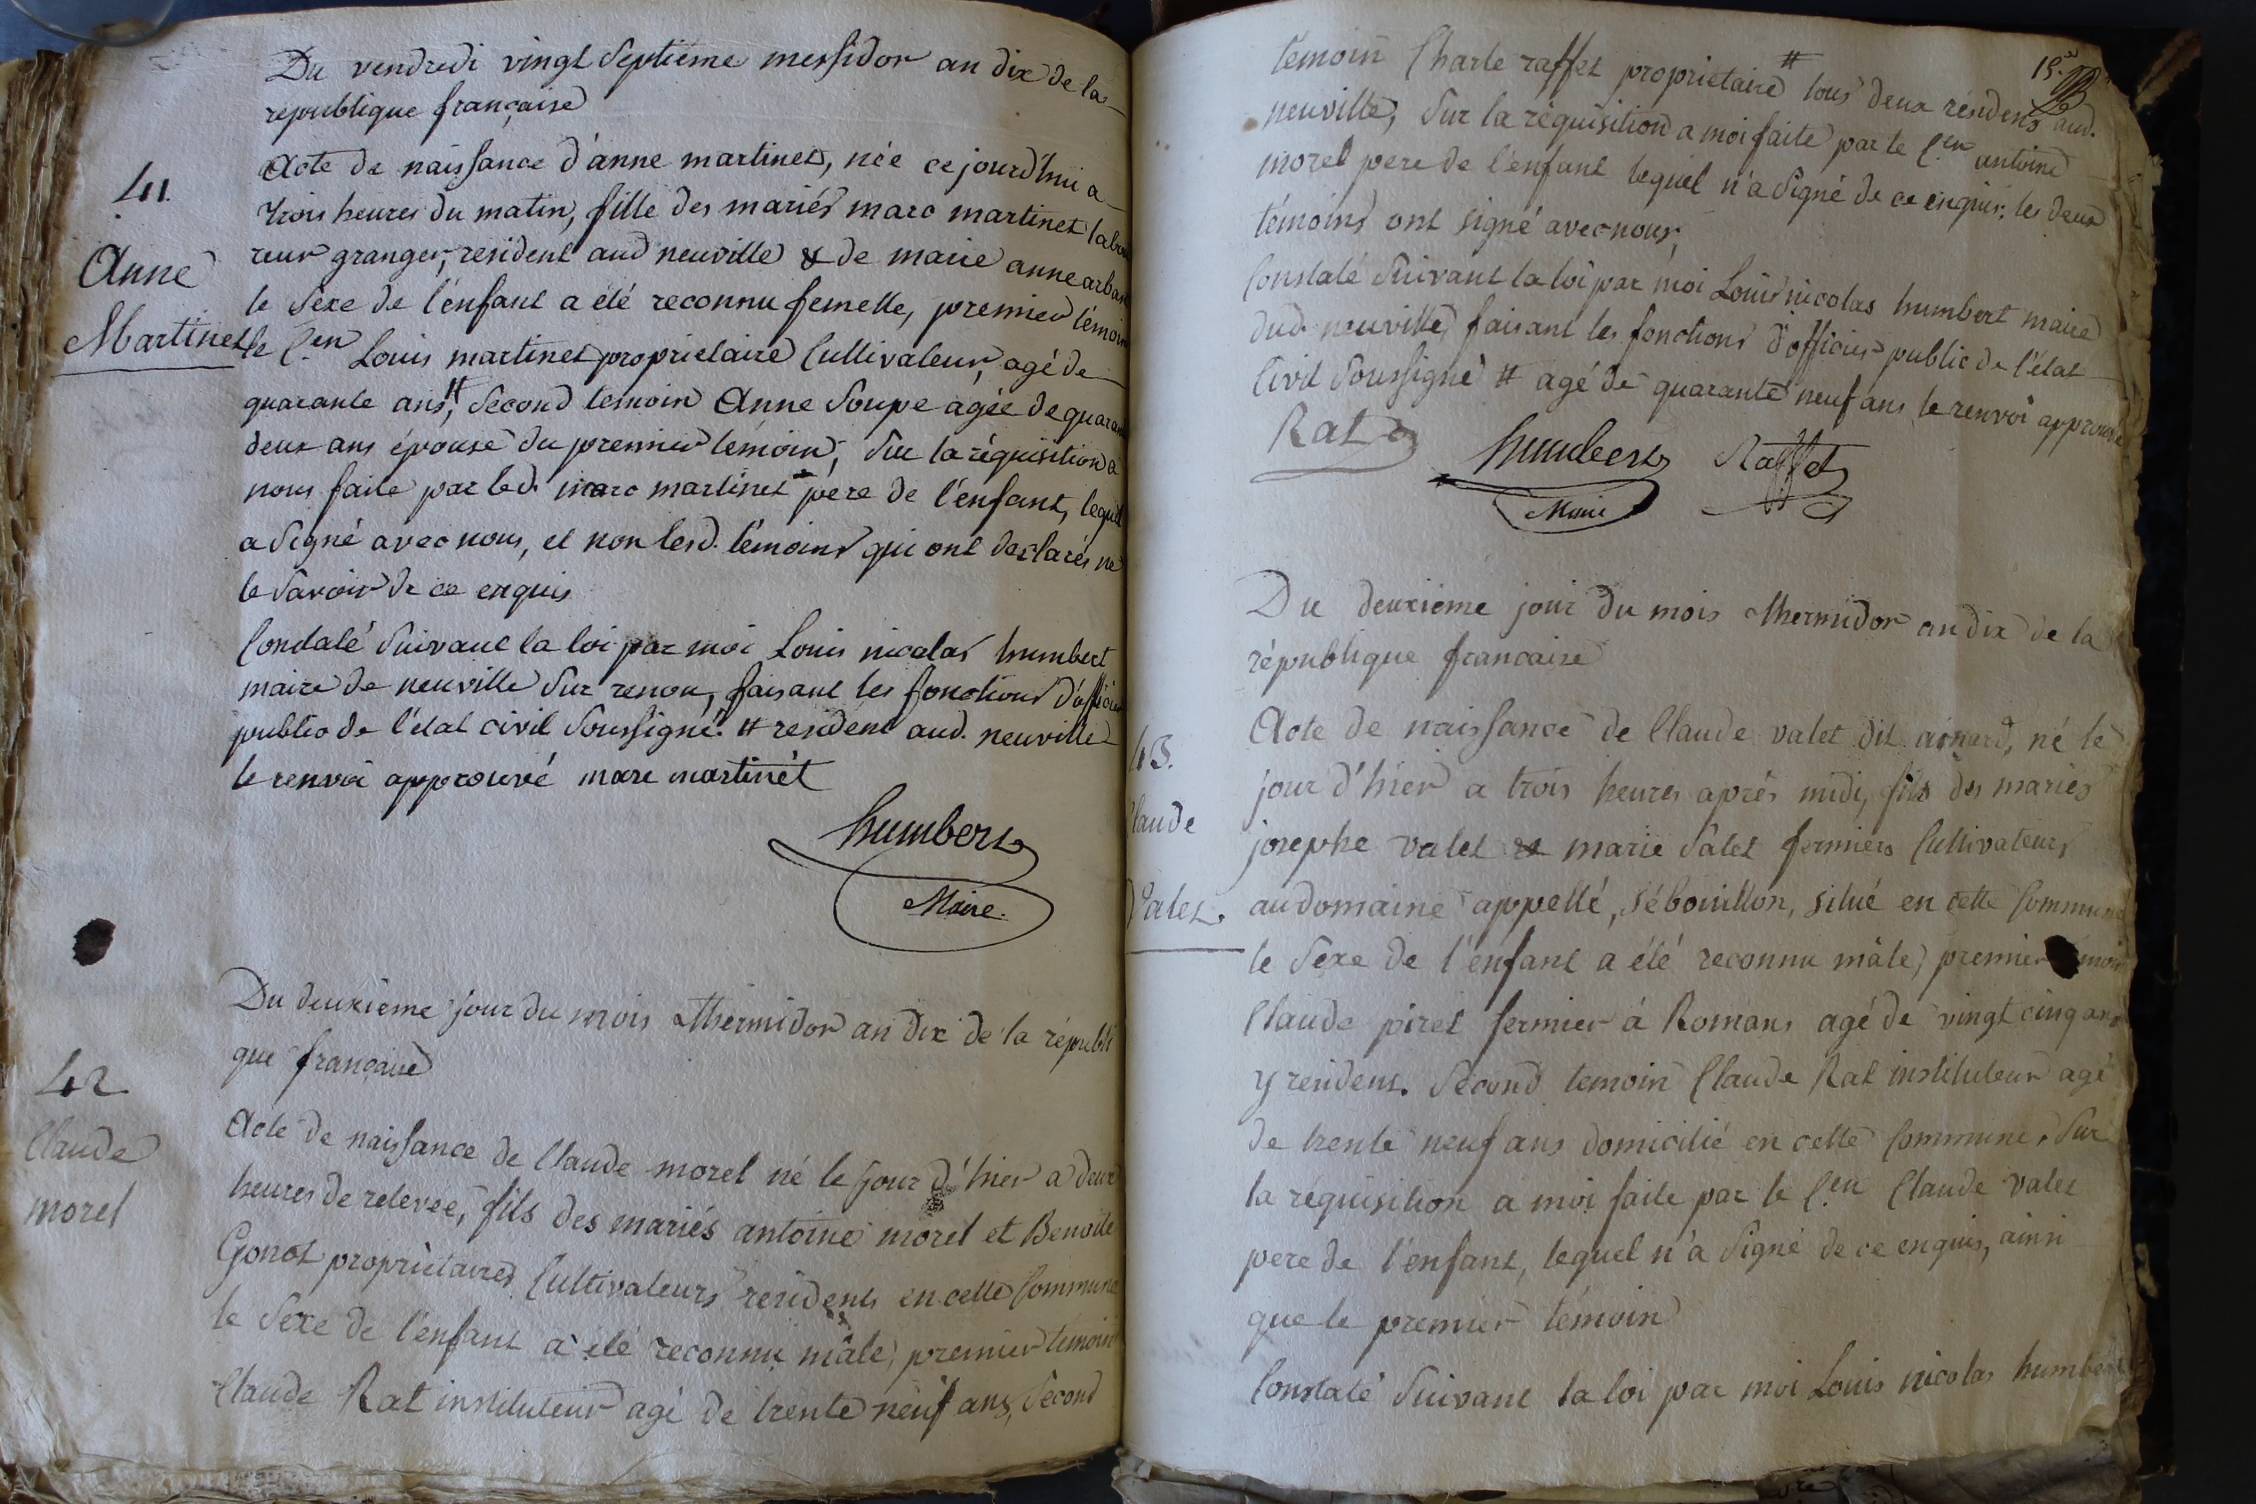 Du vendredi vingt septième messidor an dix de la
république française
41.
Anne
Martinet
Acte de naissance d'anne martinet, née ce jourd'hui a
trois heures du matin, fille des mariés marc martinet labou
reur granger, resident aud neuville & de marie anne arban
le sexe de l'énfant a été reconnu femelle, premier témoin
le C.en Louis martinet proprietaire Cultivateur, agé de
quarante ans, # second temoin Anne Soupe agée de quarante
deux ans épouse du premier témoin, sur la réquisition a
nous faite par led. marc martinet pere de l'énfant, lequel
a signé avec nous, et non lesd. témoins qui ont déclarés ne
le savoir de ce enquis
Constaté suivant la loi par moi Louis nicolas humbert
maire de neuville sur renon, faisant les fonctions d'officier
public de l'état civil soussigné. # resident aud. neuville
le renvoi approuvé marc martinet
humbert
Maire.
Du deuxième jour du mois thermidor an dix de la républi
que française
42
Claude
morel
Acte de naissance de Claude morel né le jour d'hier a deux
heures de relevée, fils des mariés antoine morel et Benoite
Gonot propriètaires Cultivateurs residents en cette Commune
le sexe de l'énfant a été reconnu mâle, premier témoin
Claude Rat instituteur agé de trente neuf ans, second
15.
témoin Charle raffet proprietaire # tous deux résidens aud.
neuville, sur la réquisition a moi faite par le C.en antoine
morel pere de l'énfant lequel n'a signé de ce enquis, les deux
témoins ont signé avec nous,
Constaté suivant la loi par moi Louis nicolas humbert maire
dud. neuville faisant les fonctions d'officier public de l'état
Civil soussigné # agé de quarante neuf ans le renvoi approuvé
Rat humbert Raffet
Maire
Du deuxième jour du mois thermidor an dix de la
république francaise
43.
Claude
Valet.
Acte de naissance de Claude valet dit ainard, né le
jour d'hier a trois heures aprés midi, fils des mariés
josephe valet & marie Salet fermiers Cultivateurs
au domaine appellé, sébouillon, situé en cette Commune
le sexe de l'énfant a été reconnu mâle, premier témoin
Claude piret fermier á Romans agé de vingt cinq ans
y residens. Second temoin Claude Rat instituteur agé
de trente neuf ans domicilié en cette Commune, Sur
la requisition a moi faite par le C.en Claude valet
pere de l'énfant, lequel n'a signé de ce enquis, ainsi
que le premier témoin
Constaté suivant la loi par moi Louis nicolas humbert